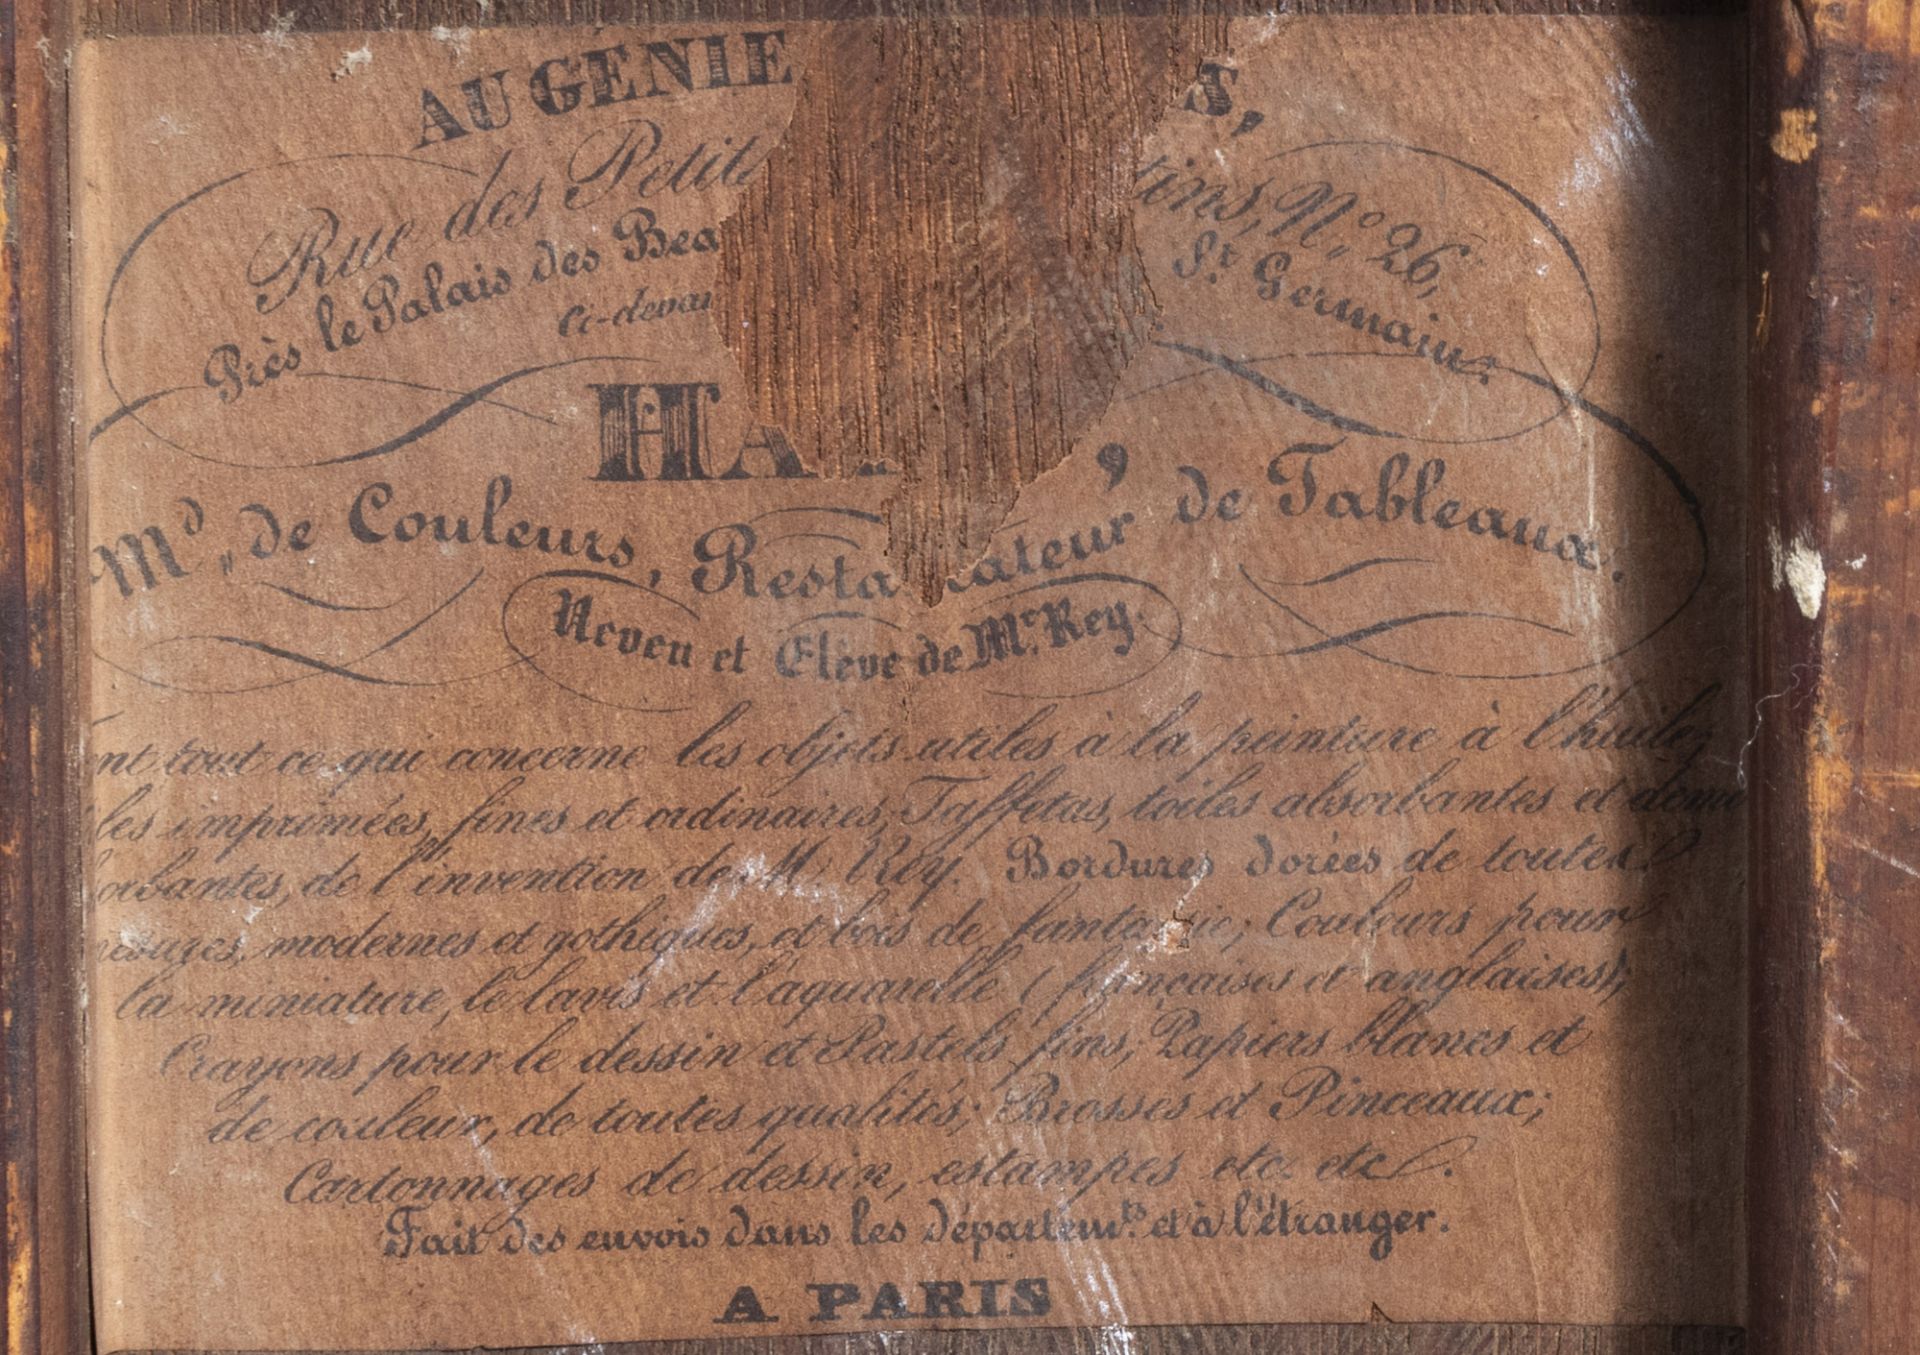 AU GÉNIE S,
Rue des Petit tins, N.° 26,
Près le Palais des Bea S.t Germain.
Ci-devan
HA ,
M.d de Couleurs, Resta ateur de Tableaux.
Neveu et Elève de M.r Rey.
nt tout ce qui concerne les objets utiles à la peinture à l'huile,
les imprimées, fines et ordinaires, Taffetas, toiles absorbantes et demi
orbantes, de l'invention de M. Rey. Bordures dorées de toutes
mesures, modernes et gothiques, et bois de fantaisie; Couleurs pour
la miniature, le lavis et l'aquarelle (françaises et anglaises);
Crayons pour le dessin et Pastels fins; Papiers blancs et
de couleur, de toutes qualités; Brosses et Pinceaux;
Cartonnages de dessin, estampes etc. etc.
Fait des envois dans les départem.ts et à l'étranger.
A PARIS